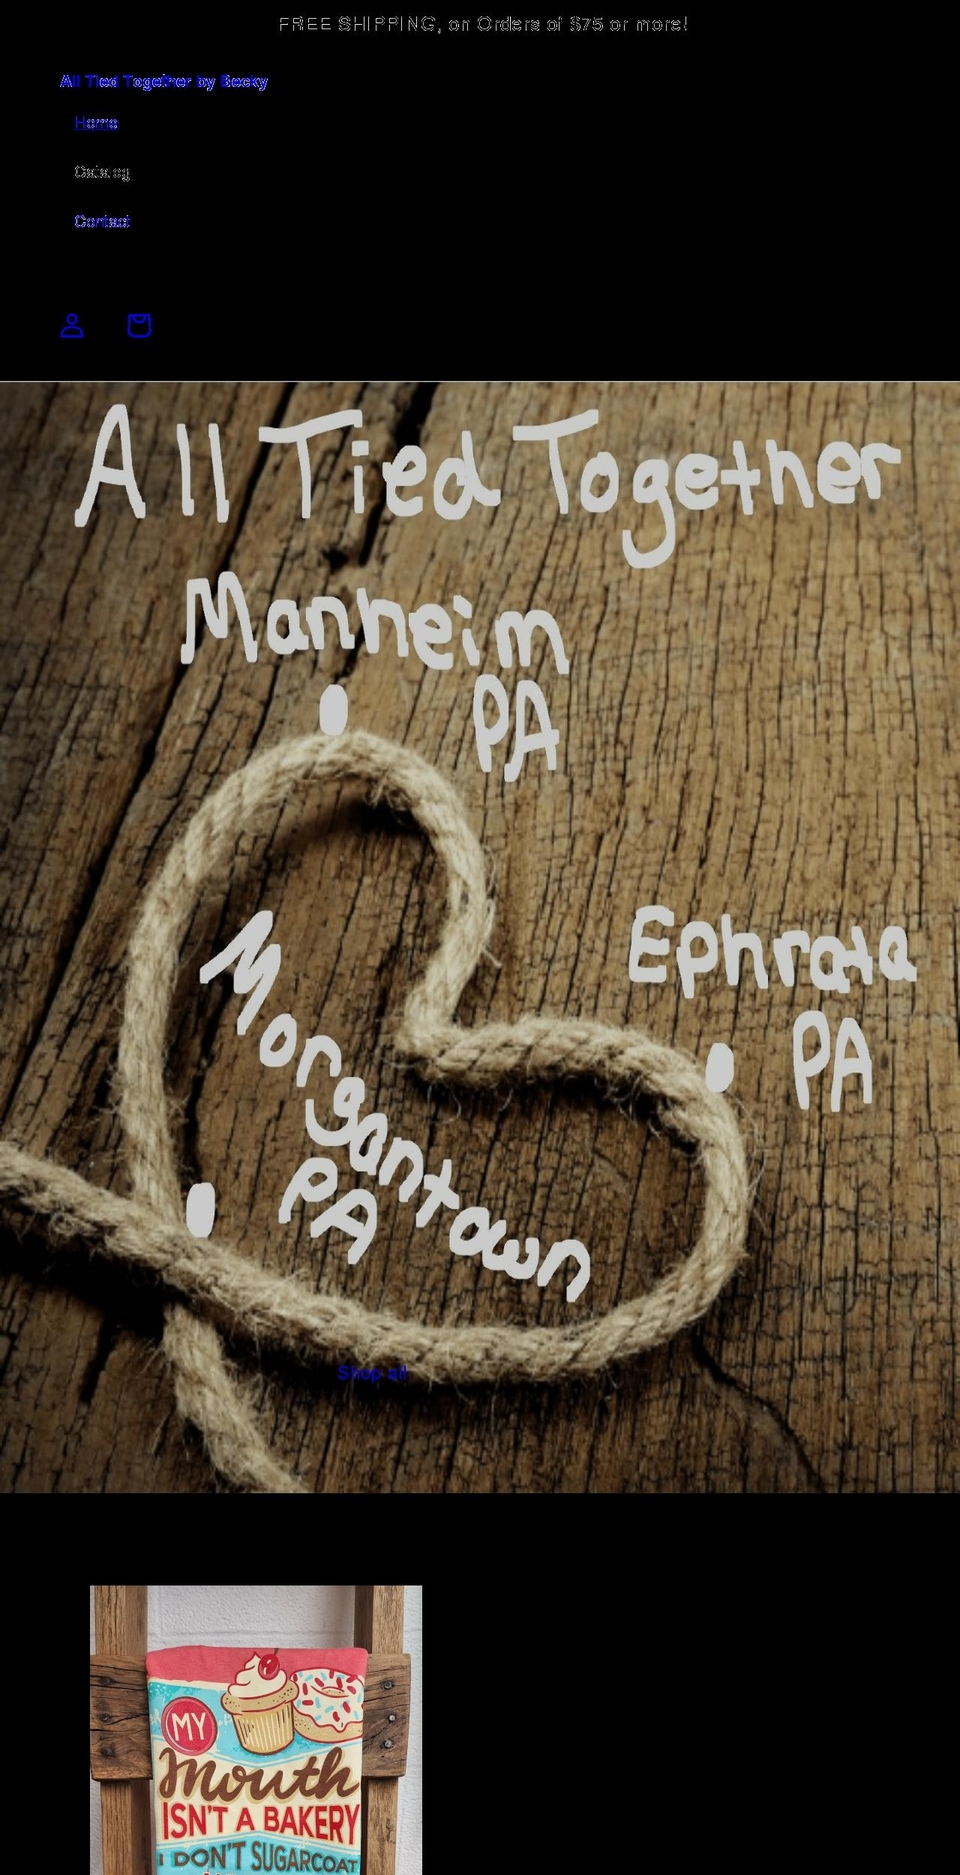 FREE SHIPPING, on Orders of $75 or more!
All Tied Together by Becky
Home
Catalog
Contact
All Tied Together
Manheim
PA
Ephrata
PA
Morgantown
PA
Shop all
MY
Mouth
ISN'T A BAKERY
I DON'T SUGARCOAT